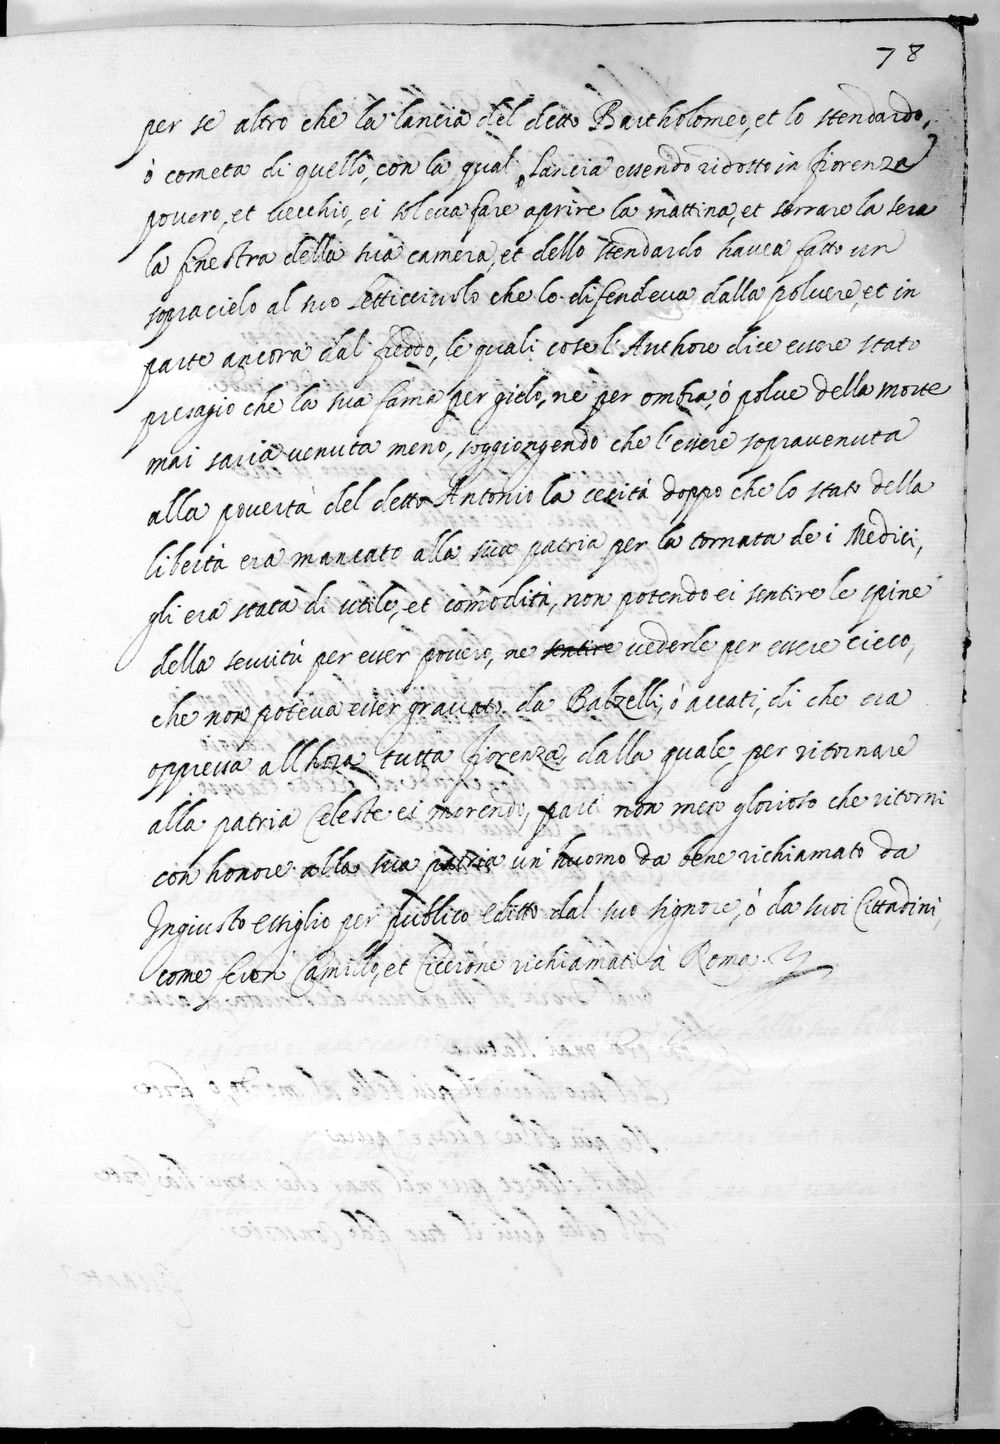 78
per se altro che la lancia del detto Bartholomeo, et lo stendardo,
ò cometa di quello, con la qual lancia essendo ridotto in fiorenza
povero, et vecchio, ei soleva fare aprire la mattina, et serrare la sera
la finestra della sua camera, et dello stendardo havea fatto un
sopracielo al suo letticciuolo che lo difendeva dalla polvere, et in
parte ancora dal freddo, le quali cose l'Authore dice essere stato
presagio che la sua fama per gielo, ne per ombra, ò polve della morte
mai saria venuta meno, soggiongendo che l'essere sopravenuta
alla povertà del detto Antonio la cecità doppo che lo stato della
libertà era mancato alla sua patria per la tornata de i Medici,
gli era stata di utile, et comodità, non potendo ei sentire le spine
della servitù per esser povero, ne sentire vederle per essere cieco,
che non poteva esser gravato da Balzelli, ò accati, di che era
oppressa allhora tutta fiorenza, dalla quale, per ritornare
alla patria Celeste ei morendo, partì non meno glorioso che ritorni
con honore alla sua patria un' huomo da bene richiamato da
Ingiusto essiglio per publico editto dal suo signore, ò da suoi Cittadini,
come furon Camillo, et Cicerone richiamati à Roma.